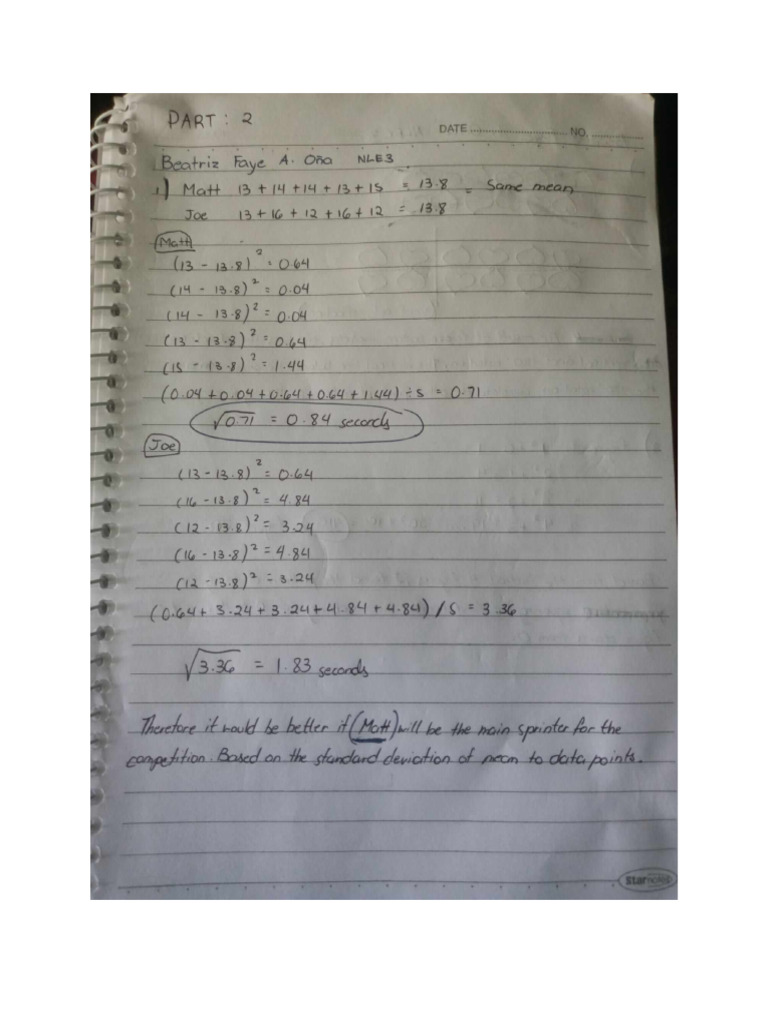 PART : 2
DATE ................................ NO. ................
Beatriz Faye A. Oña NLE3
1) Matt 13 + 14 + 14 + 13 + 15 = 13.8 = Same mean
Joe 13 + 16 + 12 + 16 + 12 = 13.8
Matt
(13 - 13.8)² = 0.64
(14 - 13.8)² = 0.04
(14 - 13.8)² = 0.04
(13 - 13.8)² = 0.64
(15 - 13.8)² = 1.44
(0.04 + 0.04 + 0.64 + 0.64 + 1.44) ÷ 5 = 0.71
√0.71 = 0.84 seconds
Joe
(13 - 13.8)² = 0.64
(16 - 13.8)² = 4.84
(12 - 13.8)² = 3.24
(16 - 13.8)² = 4.84
(12 - 13.8)² = 3.24
(0.64 + 3.24 + 3.24 + 4.84 + 4.84) / 5 = 3.36
√3.36 = 1.83 seconds
Therefore it would be better if (Matt) will be the main sprinter for the
competition. Based on the standard deviation of mean to data points.
Starnotes